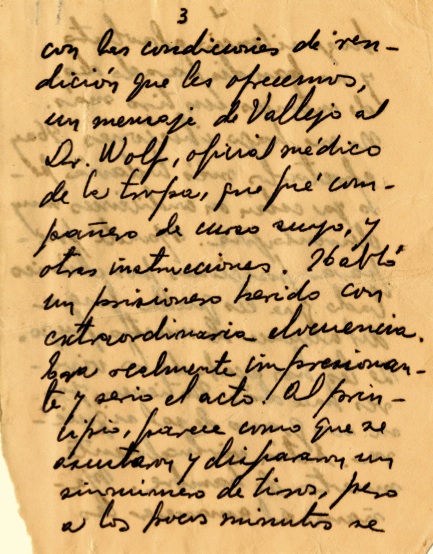 3
con las condiciones de ren-
dición que les ofrecemos,
un mensaje de Vallejo al
Dr. Wolf, oficial médico
de la tropa, que fué com-
pañero de curso suyo, y
otras instrucciones. Habló
un prisionero herido con
extraordinaria elocuencia.
Era realmente impresionan-
te y serio el acto. Al prin-
cipio, parece como que se
asustaron y dispararon un
sinnúmero de tiros, pero
a los pocos minutos se